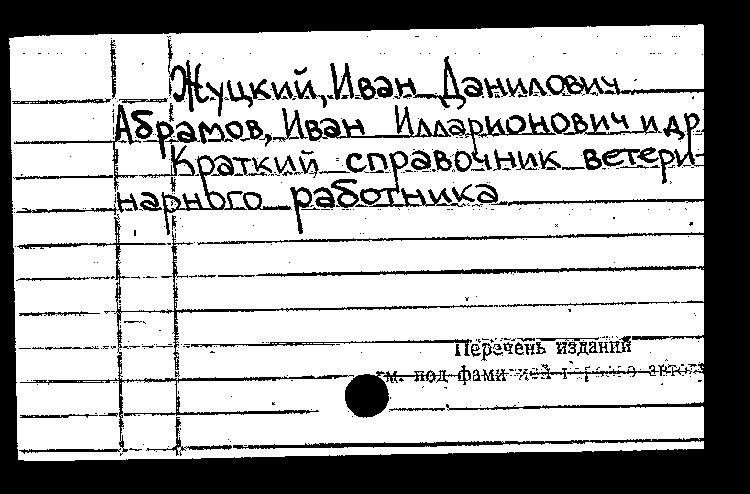 Жуцкий, Иван Данилович
Абрамов, Иван Илларионович и др
Краткий справочник ветери-
нарного работника
Перечень изданий
см. под фамилией первого автора